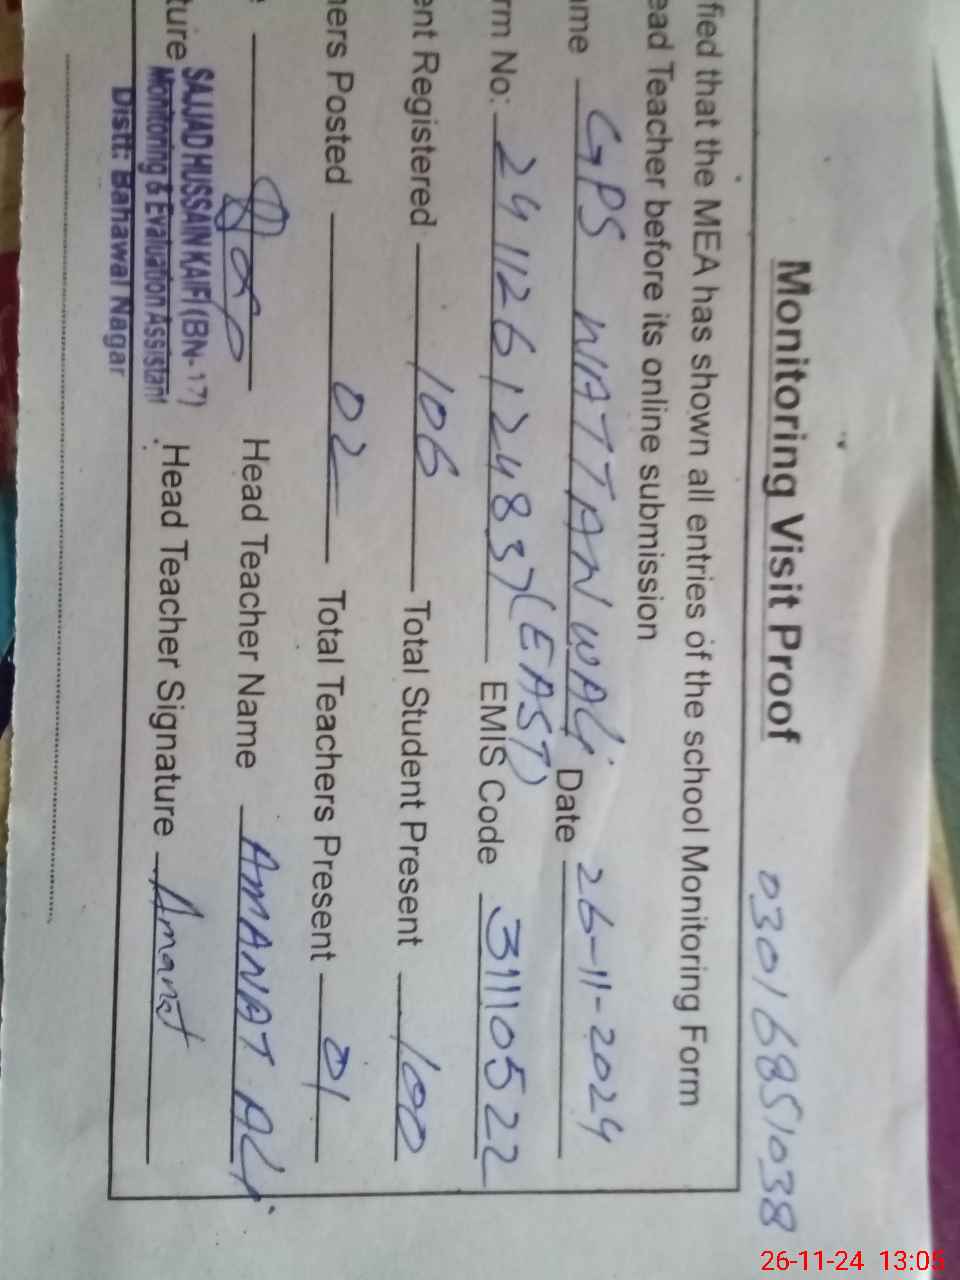 Monitoring Visit Proof 03016851038
fied that the MEA has shown all entries of the school Monitoring Form
ead Teacher before its online submission
ame GPS WATTANWALI Date 26-11-2024
rm No: 241126124837 (EAST) EMIS Code 31110522
ent Registered 106 Total Student Present 100
hers Posted 02 Total Teachers Present 01
Head Teacher Name AMANAT ALI
ture SAJJAD HUSSAIN KAIFI (BN-17) Head Teacher Signature Amanat
Monitoring & Evaluation Assistant
Distt: Bahawal Nagar
26-11-24 13:05